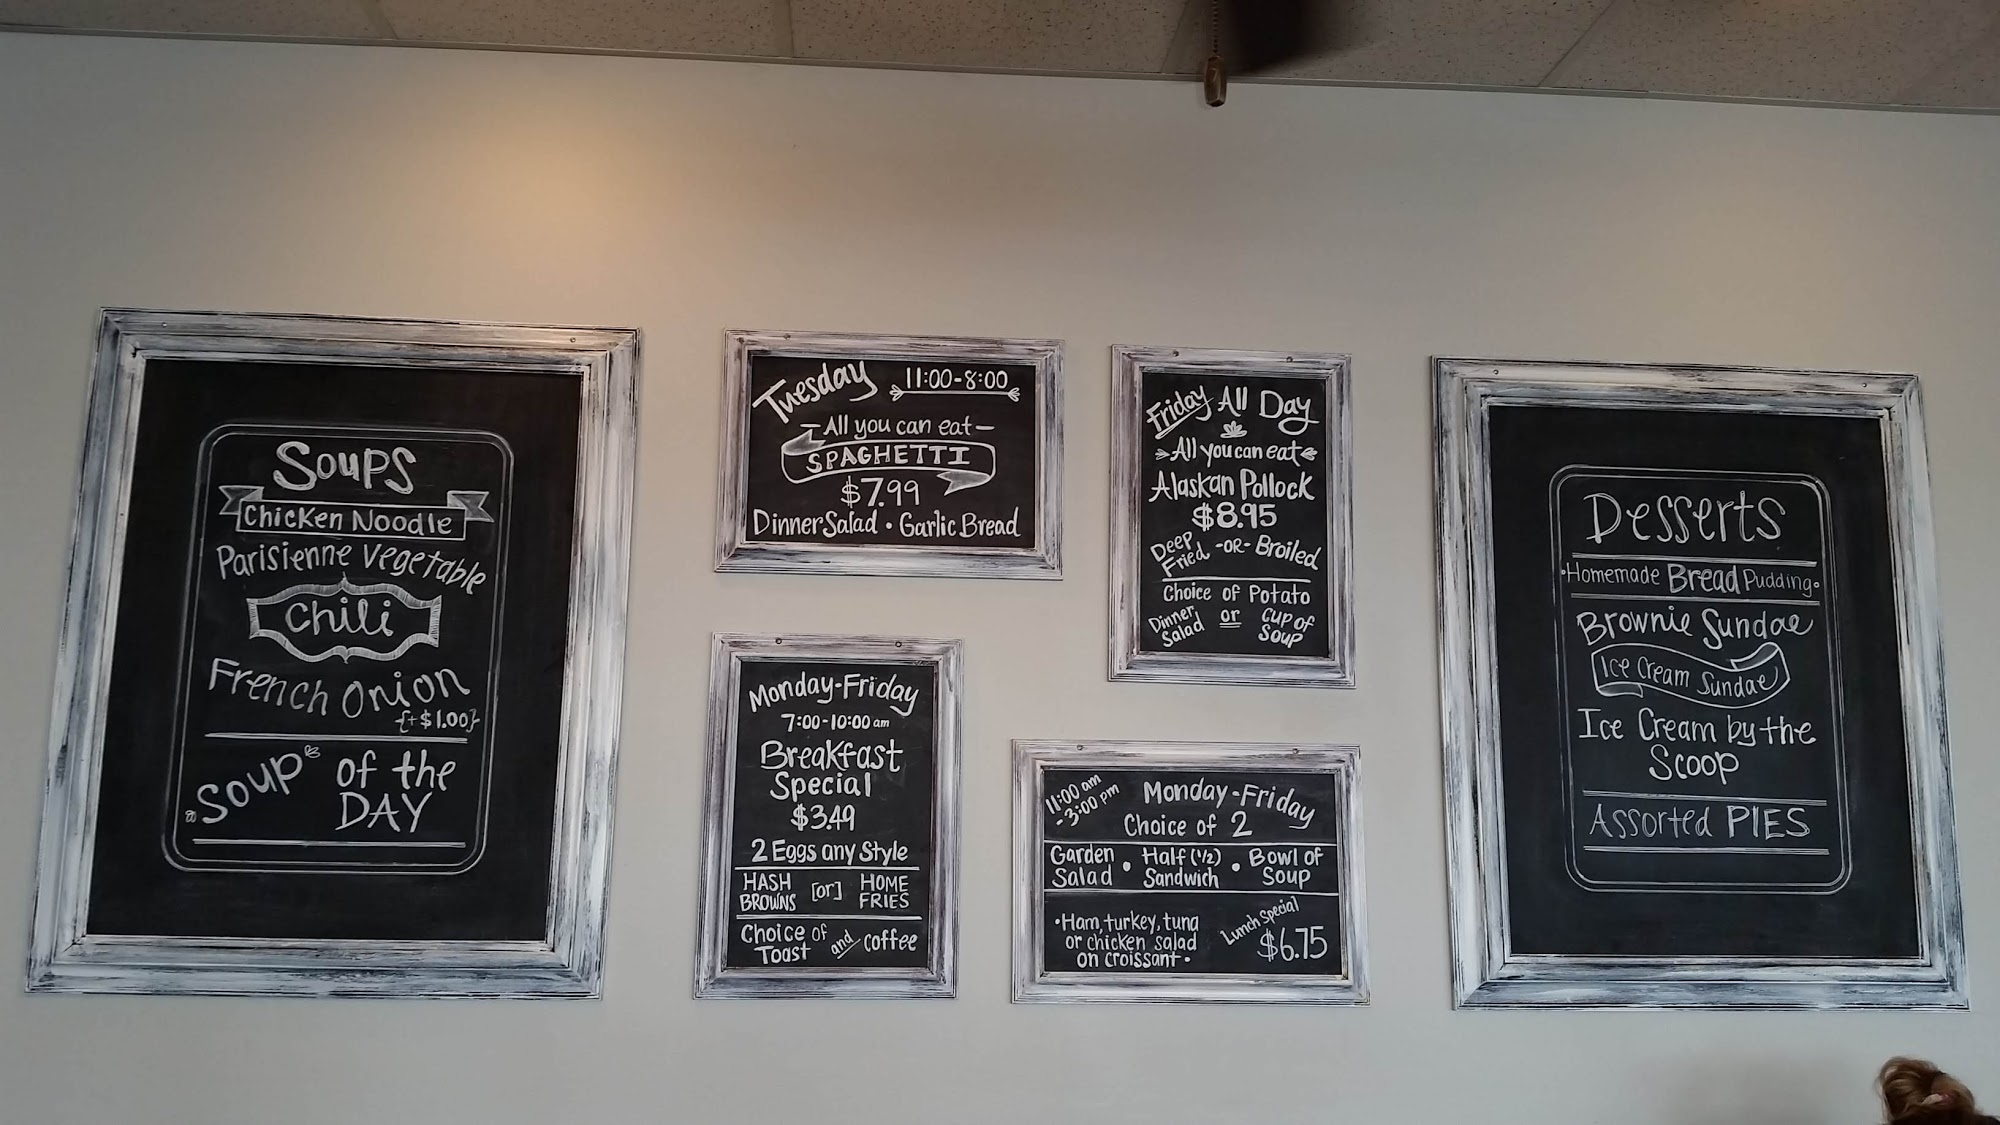 Soups
Chicken Noodle
Parisienne Vegetable
Chili
French Onion
{+$1.00}
Soup of the
DAY
Tuesday 11:00-8:00
All you can eat
SPAGHETTI
$7.99
Dinner Salad • Garlic Bread
Monday-Friday
7:00-10:00 am
Breakfast
Special
$3.49
2 Eggs any Style
HASH BROWNS [or] HOME FRIES
Choice of Toast and Coffee
Friday All Day
All you can eat
Alaskan Pollock
$8.95
Deep Fried -OR- Broiled
Choice of Potato
Dinner Salad or Cup of Soup
11:00 am - 3:00 pm
Monday-Friday
Choice of 2
Garden Salad • Half (1/2) Sandwich • Bowl of Soup
•Ham, turkey, tuna
or chicken salad
on croissant•
Lunch Special
$6.75
Desserts
•Homemade Bread Pudding•
Brownie Sundae
Ice Cream Sundae
Ice Cream by the
Scoop
Assorted PIES